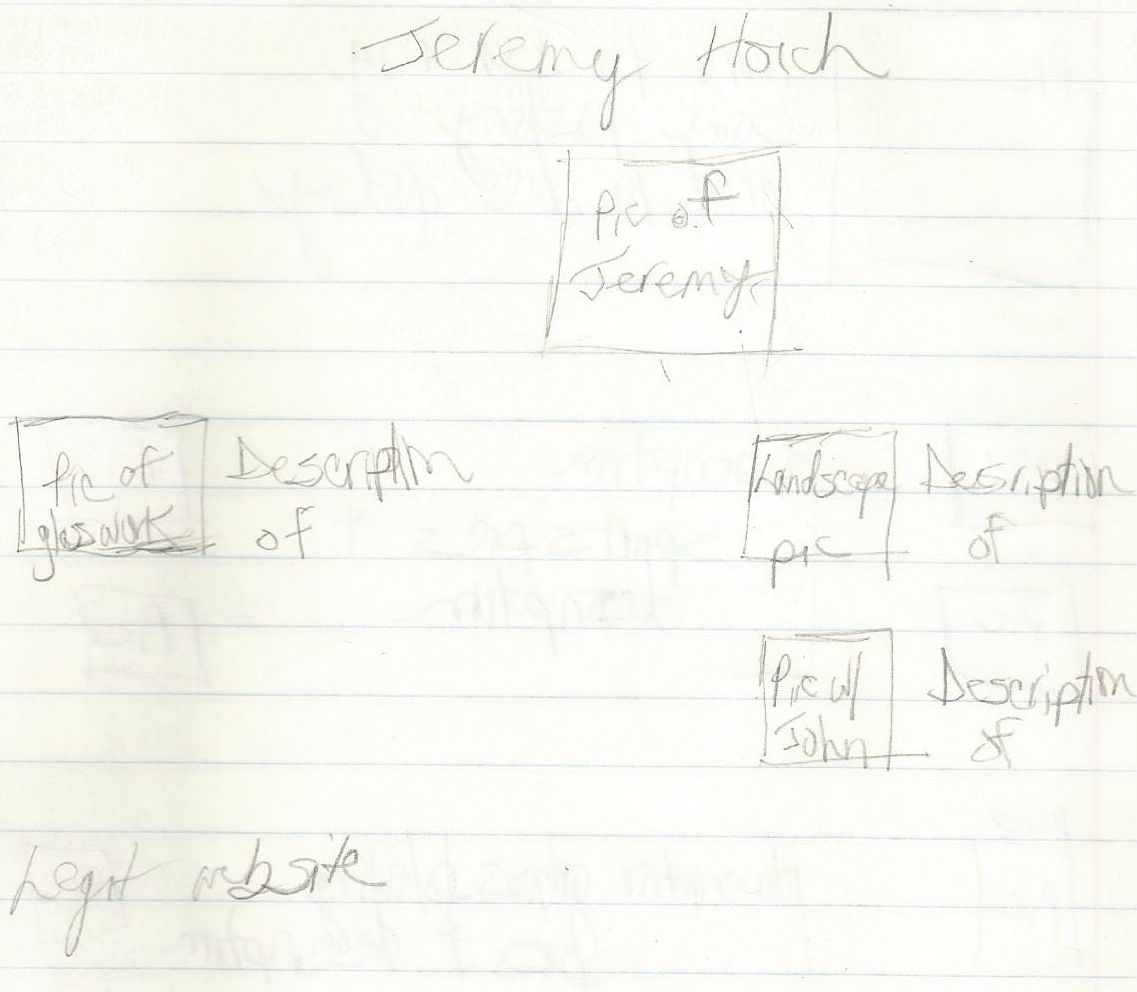 Jeremy Hoich
pic of
Jeremy
Pic of
glasswork
Description
of
Landscape
pic
Description
of
Pic w/
John
Description
of
Legit website